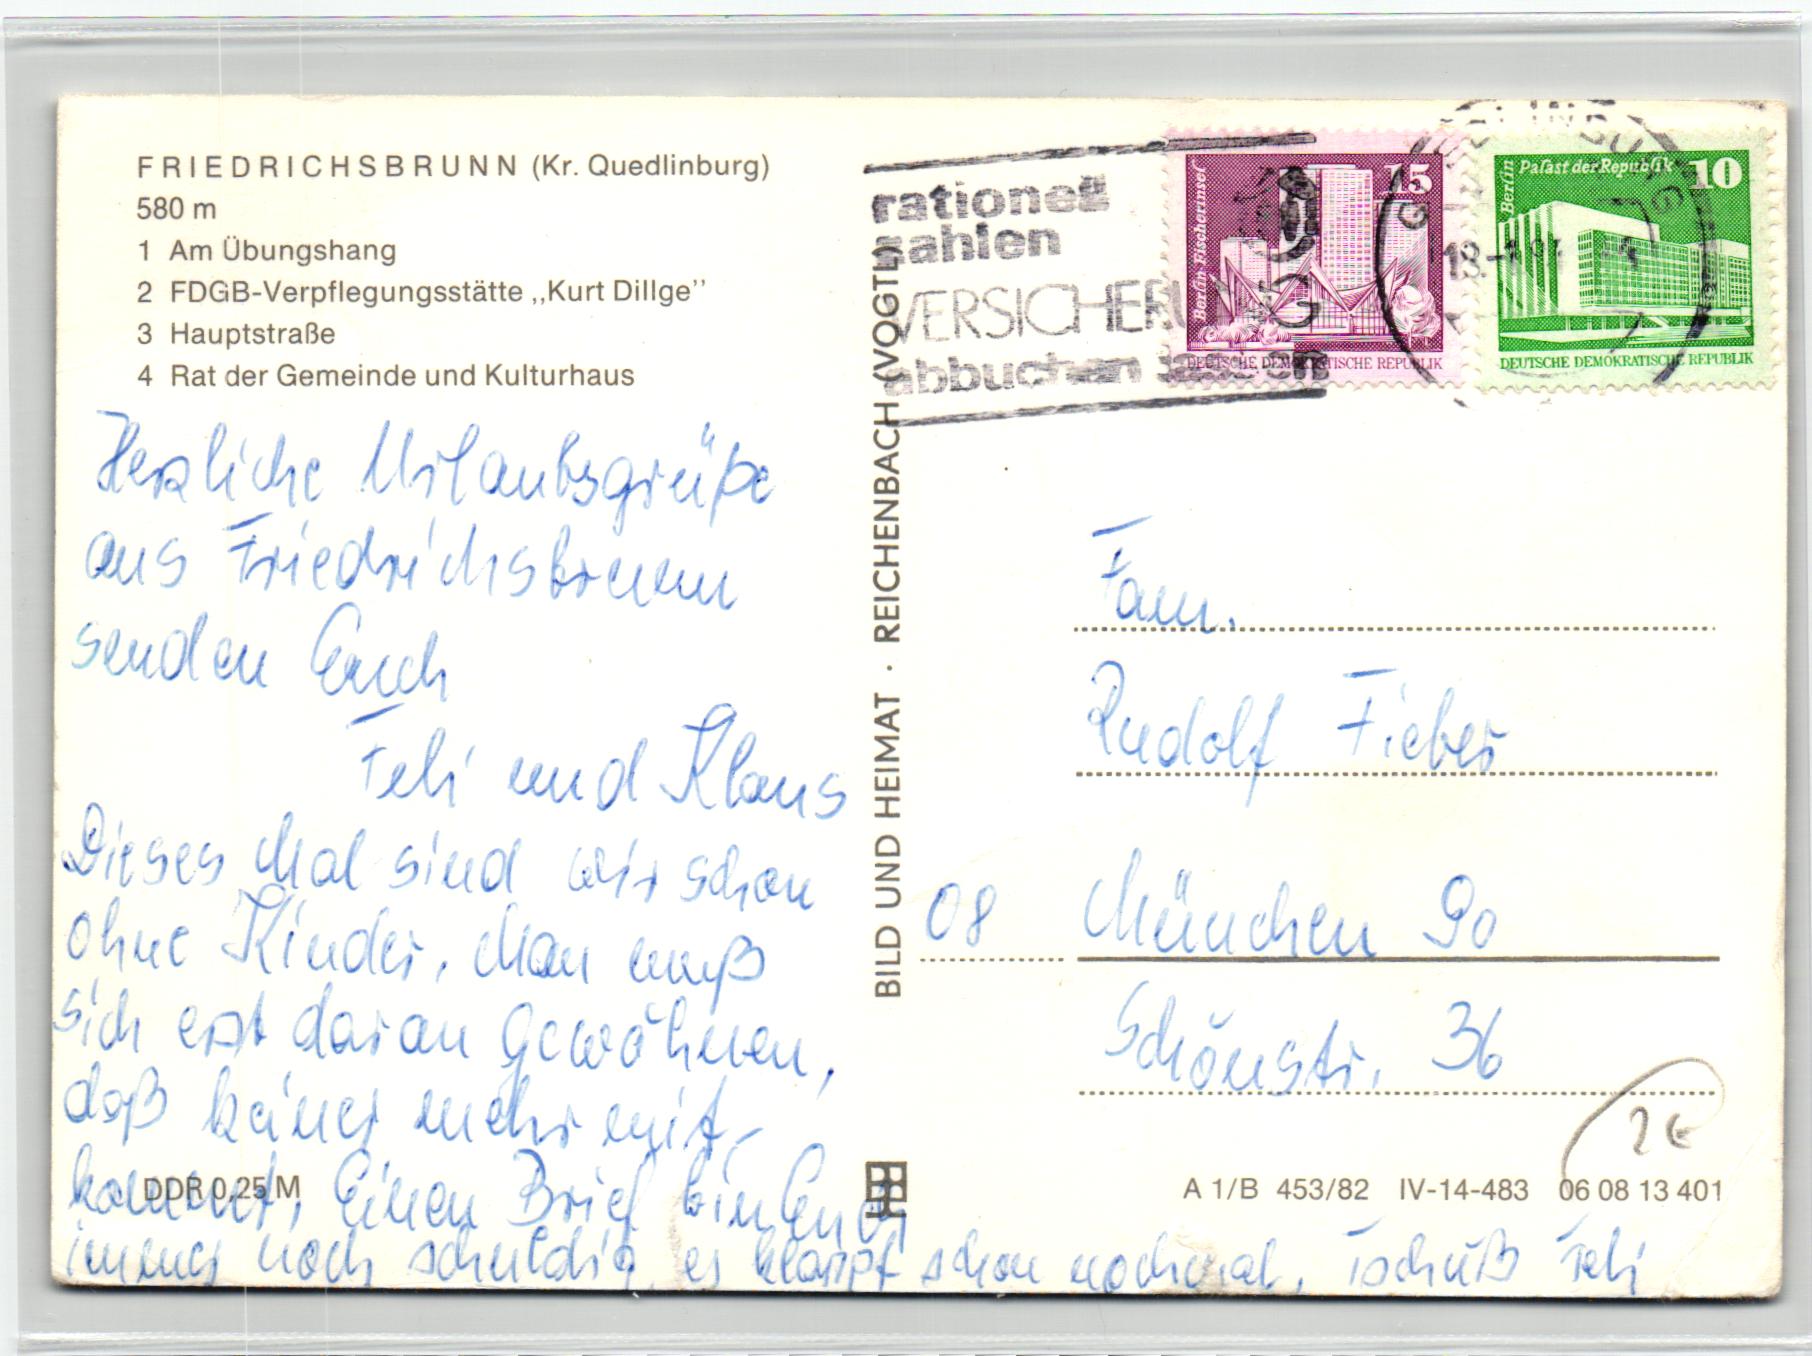 FRIEDRICHSBRUNN (Kr. Quedlinburg)
580 m
1 Am Übungshang
2 FDGB-Verpflegungsstätte „Kurt Dillge”
3 Hauptstraße
4 Rat der Gemeinde und Kulturhaus
Herzliche Urlaubsgrüße
aus Friedrichsbrunn
senden Euch
Feli und Klaus
Dieses Mal sind wir schon
ohne Kinder. Man muß
sich erst daran gewöhnen,
daß keiner mehr mit-
kommt. Einen Brief bin Euch
immer noch schuldig, es klappt schon nochmal. Tschüß Feli
DDR 0,25 M
BILD UND HEIMAT · REICHENBACH (VOGTL)
rationell
zahlen
VERSICHERU
abbuchen lassen
Berlin Fischerinsel
15
DEUTSCHE DEMOKRATISCHE REPUBLIK
Berlin
Palast der Republik
10
DEUTSCHE DEMOKRATISCHE REPUBLIK
Fam.
Rudolf Fieber
08 München 90
Schönstr. 36
2 €
A 1/B 453/82 IV-14-483 06 08 13 401